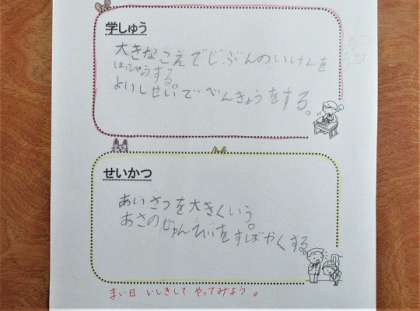 学しゅう
大きなこえでじぶんのいけんを
はっぴょうする。
よいしせいでべんきょうをする。
せいかつ
あいさつを大きくいう。
あさのじゅんびをすばやくする。
まい日 いしきして やってみよう。